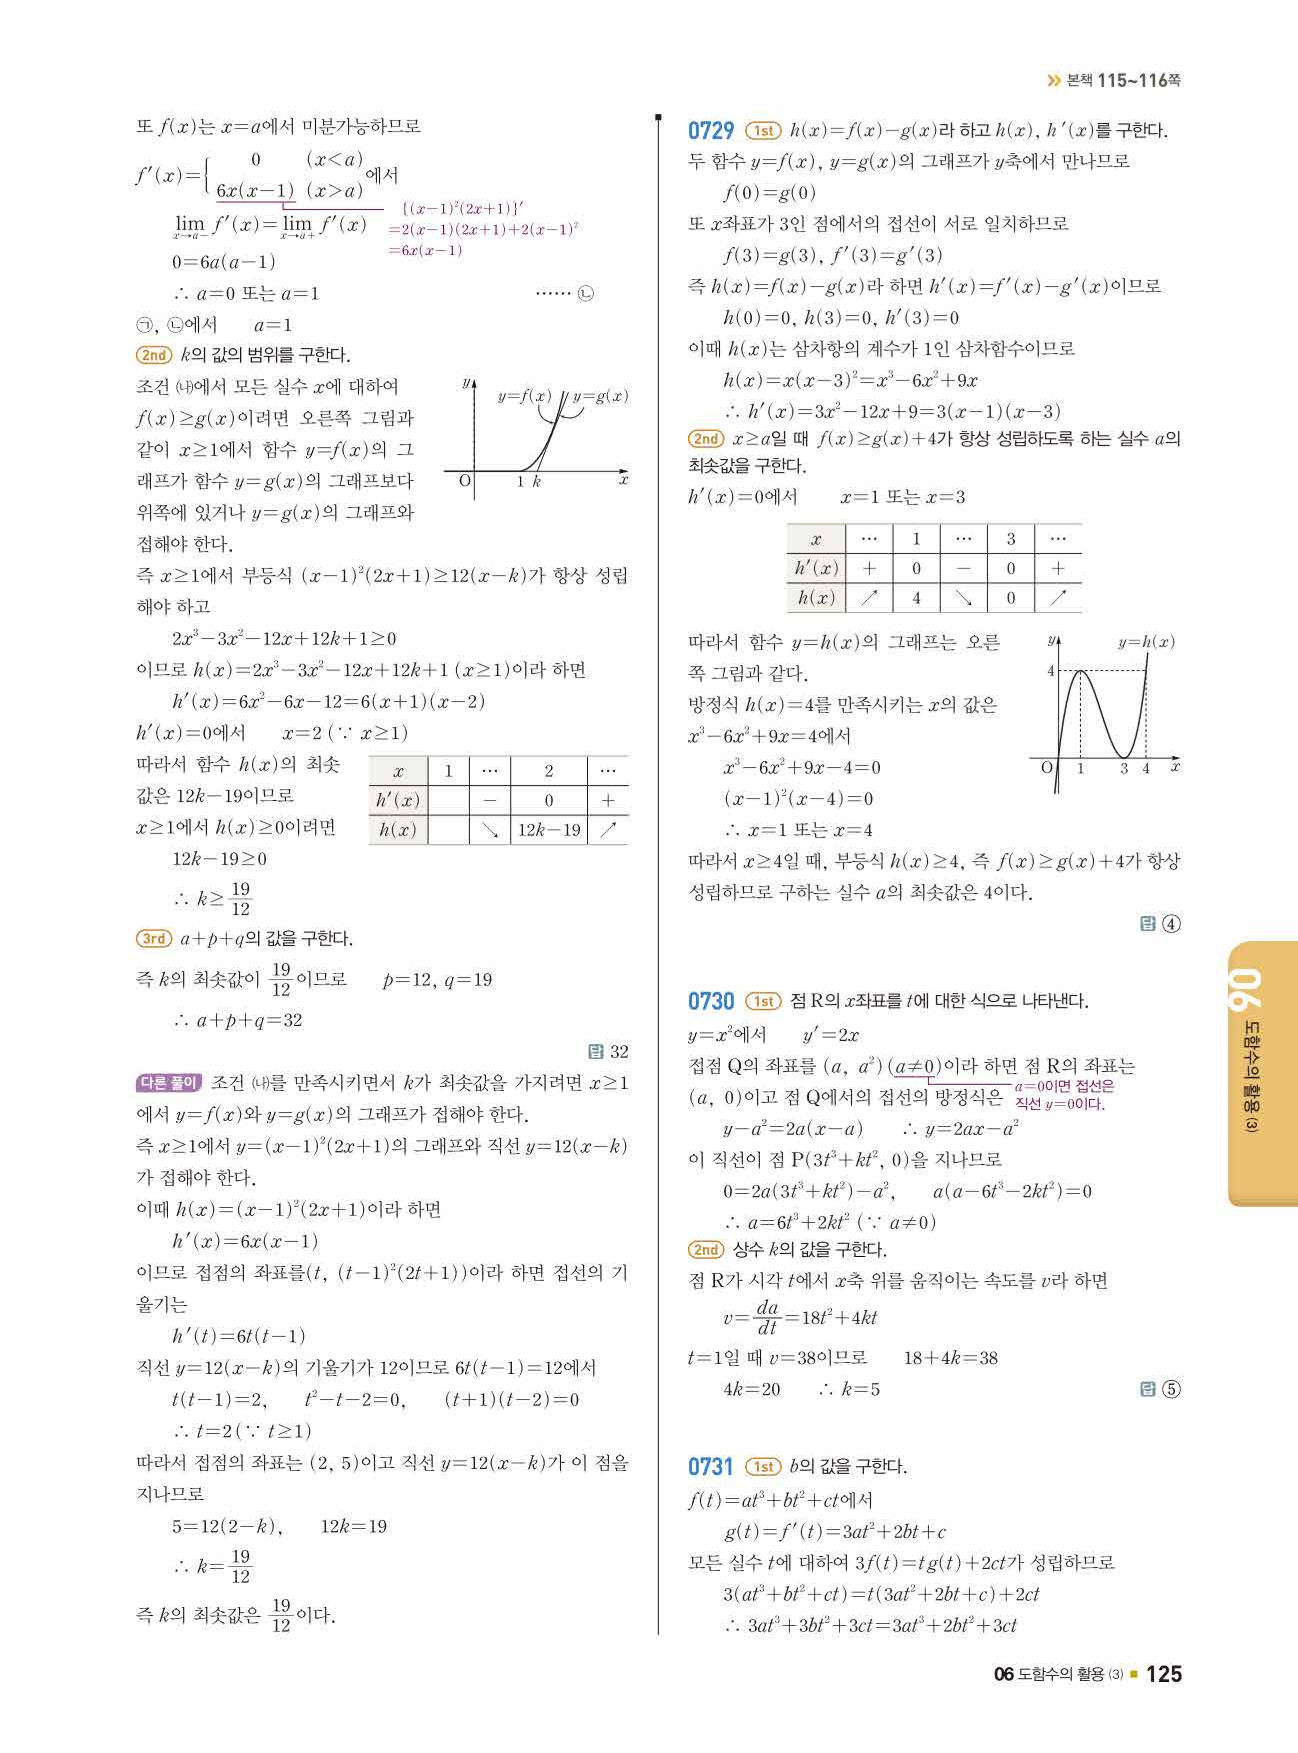 ≫ 본책 115~116쪽
또 f(x)는 x=a에서 미분가능하므로
f′(x)={ 0 (x<a)
6x(x−1) (x>a) 에서
{(x−1)²(2x+1)}′
=2(x−1)(2x+1)+2(x−1)²
=6x(x−1)
lim x→a− f′(x)=lim x→a+ f′(x)
0=6a(a−1)
∴ a=0 또는 a=1 …… ㉡
㉠, ㉡에서 a=1
2nd k의 값의 범위를 구한다.
조건 ㈏에서 모든 실수 x에 대하여
f(x)≥g(x)이려면 오른쪽 그림과
같이 x≥1에서 함수 y=f(x)의 그
래프가 함수 y=g(x)의 그래프보다
위쪽에 있거나 y=g(x)의 그래프와
접해야 한다.
y
y=f(x) y=g(x)
O 1 k x
즉 x≥1에서 부등식 (x−1)²(2x+1)≥12(x−k)가 항상 성립
해야 하고
2x³−3x²−12x+12k+1≥0
이므로 h(x)=2x³−3x²−12x+12k+1 (x≥1)이라 하면
h′(x)=6x²−6x−12=6(x+1)(x−2)
h′(x)=0에서 x=2 (∵ x≥1)
따라서 함수 h(x)의 최솟
값은 12k−19이므로
x≥1에서 h(x)≥0이려면
x 1 … 2 …
h′(x) − 0 +
h(x) ↘ 12k−19 ↗
12k−19≥0
∴ k≥19/12
3rd a+p+q의 값을 구한다.
즉 k의 최솟값이 19/12이므로 p=12, q=19
∴ a+p+q=32
답 32
다른 풀이 조건 ㈏를 만족시키면서 k가 최솟값을 가지려면 x≥1
에서 y=f(x)와 y=g(x)의 그래프가 접해야 한다.
즉 x≥1에서 y=(x−1)²(2x+1)의 그래프와 직선 y=12(x−k)
가 접해야 한다.
이때 h(x)=(x−1)²(2x+1)이라 하면
h′(x)=6x(x−1)
이므로 접점의 좌표를(t, (t−1)²(2t+1))이라 하면 접선의 기
울기는
h′(t)=6t(t−1)
직선 y=12(x−k)의 기울기가 12이므로 6t(t−1)=12에서
t(t−1)=2, t²−t−2=0, (t+1)(t−2)=0
∴ t=2(∵ t≥1)
따라서 접점의 좌표는 (2, 5)이고 직선 y=12(x−k)가 이 점을
지나므로
5=12(2−k), 12k=19
∴ k=19/12
즉 k의 최솟값은 19/12이다.
0729 1st h(x)=f(x)−g(x)라 하고 h(x), h′(x)를 구한다.
두 함수 y=f(x), y=g(x)의 그래프가 y축에서 만나므로
f(0)=g(0)
또 x좌표가 3인 점에서의 접선이 서로 일치하므로
f(3)=g(3), f′(3)=g′(3)
즉 h(x)=f(x)−g(x)라 하면 h′(x)=f′(x)−g′(x)이므로
h(0)=0, h(3)=0, h′(3)=0
이때 h(x)는 삼차항의 계수가 1인 삼차함수이므로
h(x)=x(x−3)²=x³−6x²+9x
∴ h′(x)=3x²−12x+9=3(x−1)(x−3)
2nd x≥a일 때 f(x)≥g(x)+4가 항상 성립하도록 하는 실수 a의
최솟값을 구한다.
h′(x)=0에서 x=1 또는 x=3
x … 1 … 3 …
h′(x) + 0 − 0 +
h(x) ↗ 4 ↘ 0 ↗
따라서 함수 y=h(x)의 그래프는 오른
쪽 그림과 같다.
방정식 h(x)=4를 만족시키는 x의 값은
x³−6x²+9x=4에서
x³−6x²+9x−4=0
(x−1)²(x−4)=0
∴ x=1 또는 x=4
y y=h(x)
4
O 1 3 4 x
따라서 x≥4일 때, 부등식 h(x)≥4, 즉 f(x)≥g(x)+4가 항상
성립하므로 구하는 실수 a의 최솟값은 4이다.
답 ④
0730 1st 점 R의 x좌표를 t에 대한 식으로 나타낸다.
y=x²에서 y′=2x
접점 Q의 좌표를 (a, a²)(a≠0)이라 하면 점 R의 좌표는
(a, 0)이고 점 Q에서의 접선의 방정식은
a=0이면 접선은
직선 y=0이다.
y−a²=2a(x−a) ∴ y=2ax−a²
이 직선이 점 P(3t³+kt², 0)을 지나므로
0=2a(3t³+kt²)−a², a(a−6t³−2kt²)=0
∴ a=6t³+2kt² (∵ a≠0)
2nd 상수 k의 값을 구한다.
점 R가 시각 t에서 x축 위를 움직이는 속도를 v라 하면
v=da/dt=18t²+4kt
t=1일 때 v=38이므로 18+4k=38
4k=20 ∴ k=5 답 ⑤
0731 1st b의 값을 구한다.
f(t)=at³+bt²+ct에서
g(t)=f′(t)=3at²+2bt+c
모든 실수 t에 대하여 3f(t)=tg(t)+2ct가 성립하므로
3(at³+bt²+ct)=t(3at²+2bt+c)+2ct
∴ 3at³+3bt²+3ct=3at³+2bt²+3ct
06 도함수의 활용 ⑶
06 도함수의 활용 ⑶ ■ 125